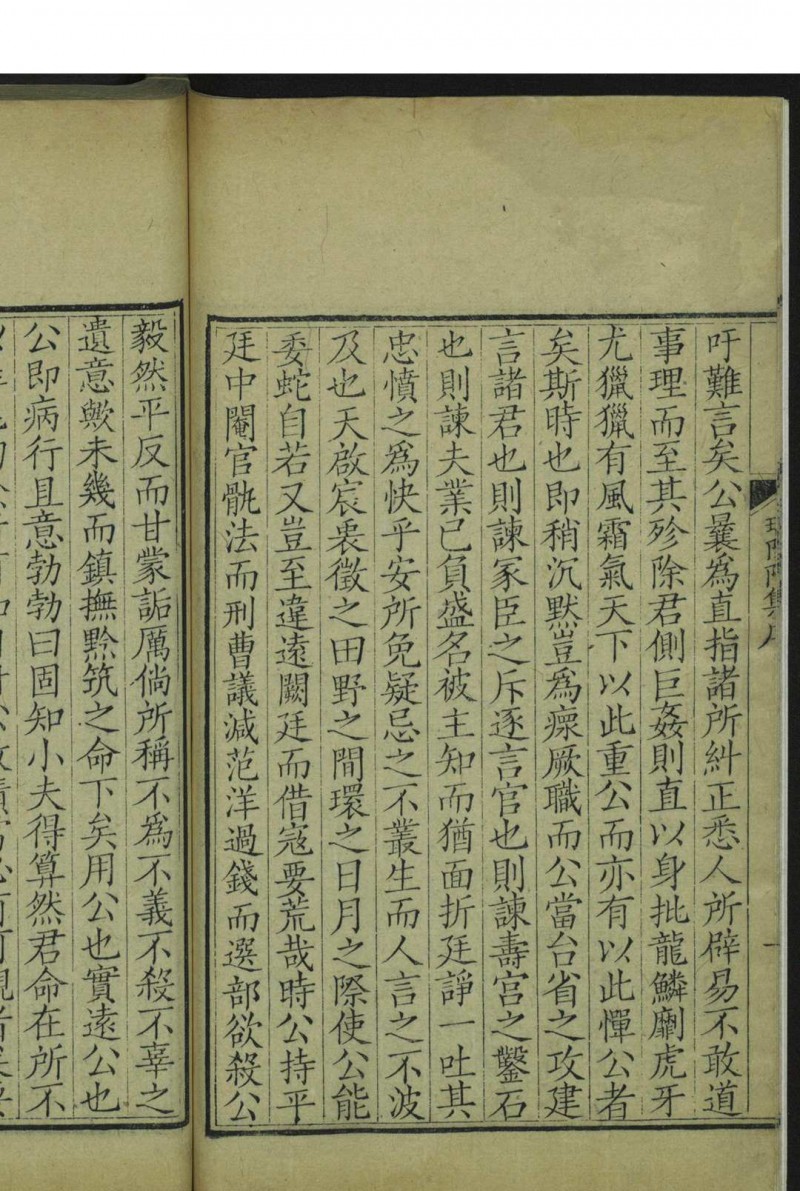 吁難言矣公曩為直指諸所糾正悉人所辟易不敢道
事理而至其殄除君側巨姦則直以身批龍鱗劘虎牙
尤獵獵有風霜氣天下以此重公而亦有以此憚公者
矣斯時也即稍沉默豈為瘝厥職而公當台省之攻建
言諸君也則諫冢臣之斥逐言官也則諫壽宮之鑿石
也則諫夫業已負盛名被主知而猶面折廷諍一吐其
忠憤之為快乎安所免疑忌之不叢生而人言之不波
及也天啟宸衷徵之田野之間環之日月之際使公能
委蛇自若又豈至違遠闕廷而借寇要荒哉時公持平
廷中閹官骫法而刑曹議減范洋過錢而選部欲殺公
毅然平反而甘蒙詬厲倘所稱不為不義不殺不辜之
遺意歟未幾而鎮撫黔筑之命下矣用公也實遠公也
公即病行且意勃勃曰固知小夫得算然君命在所不